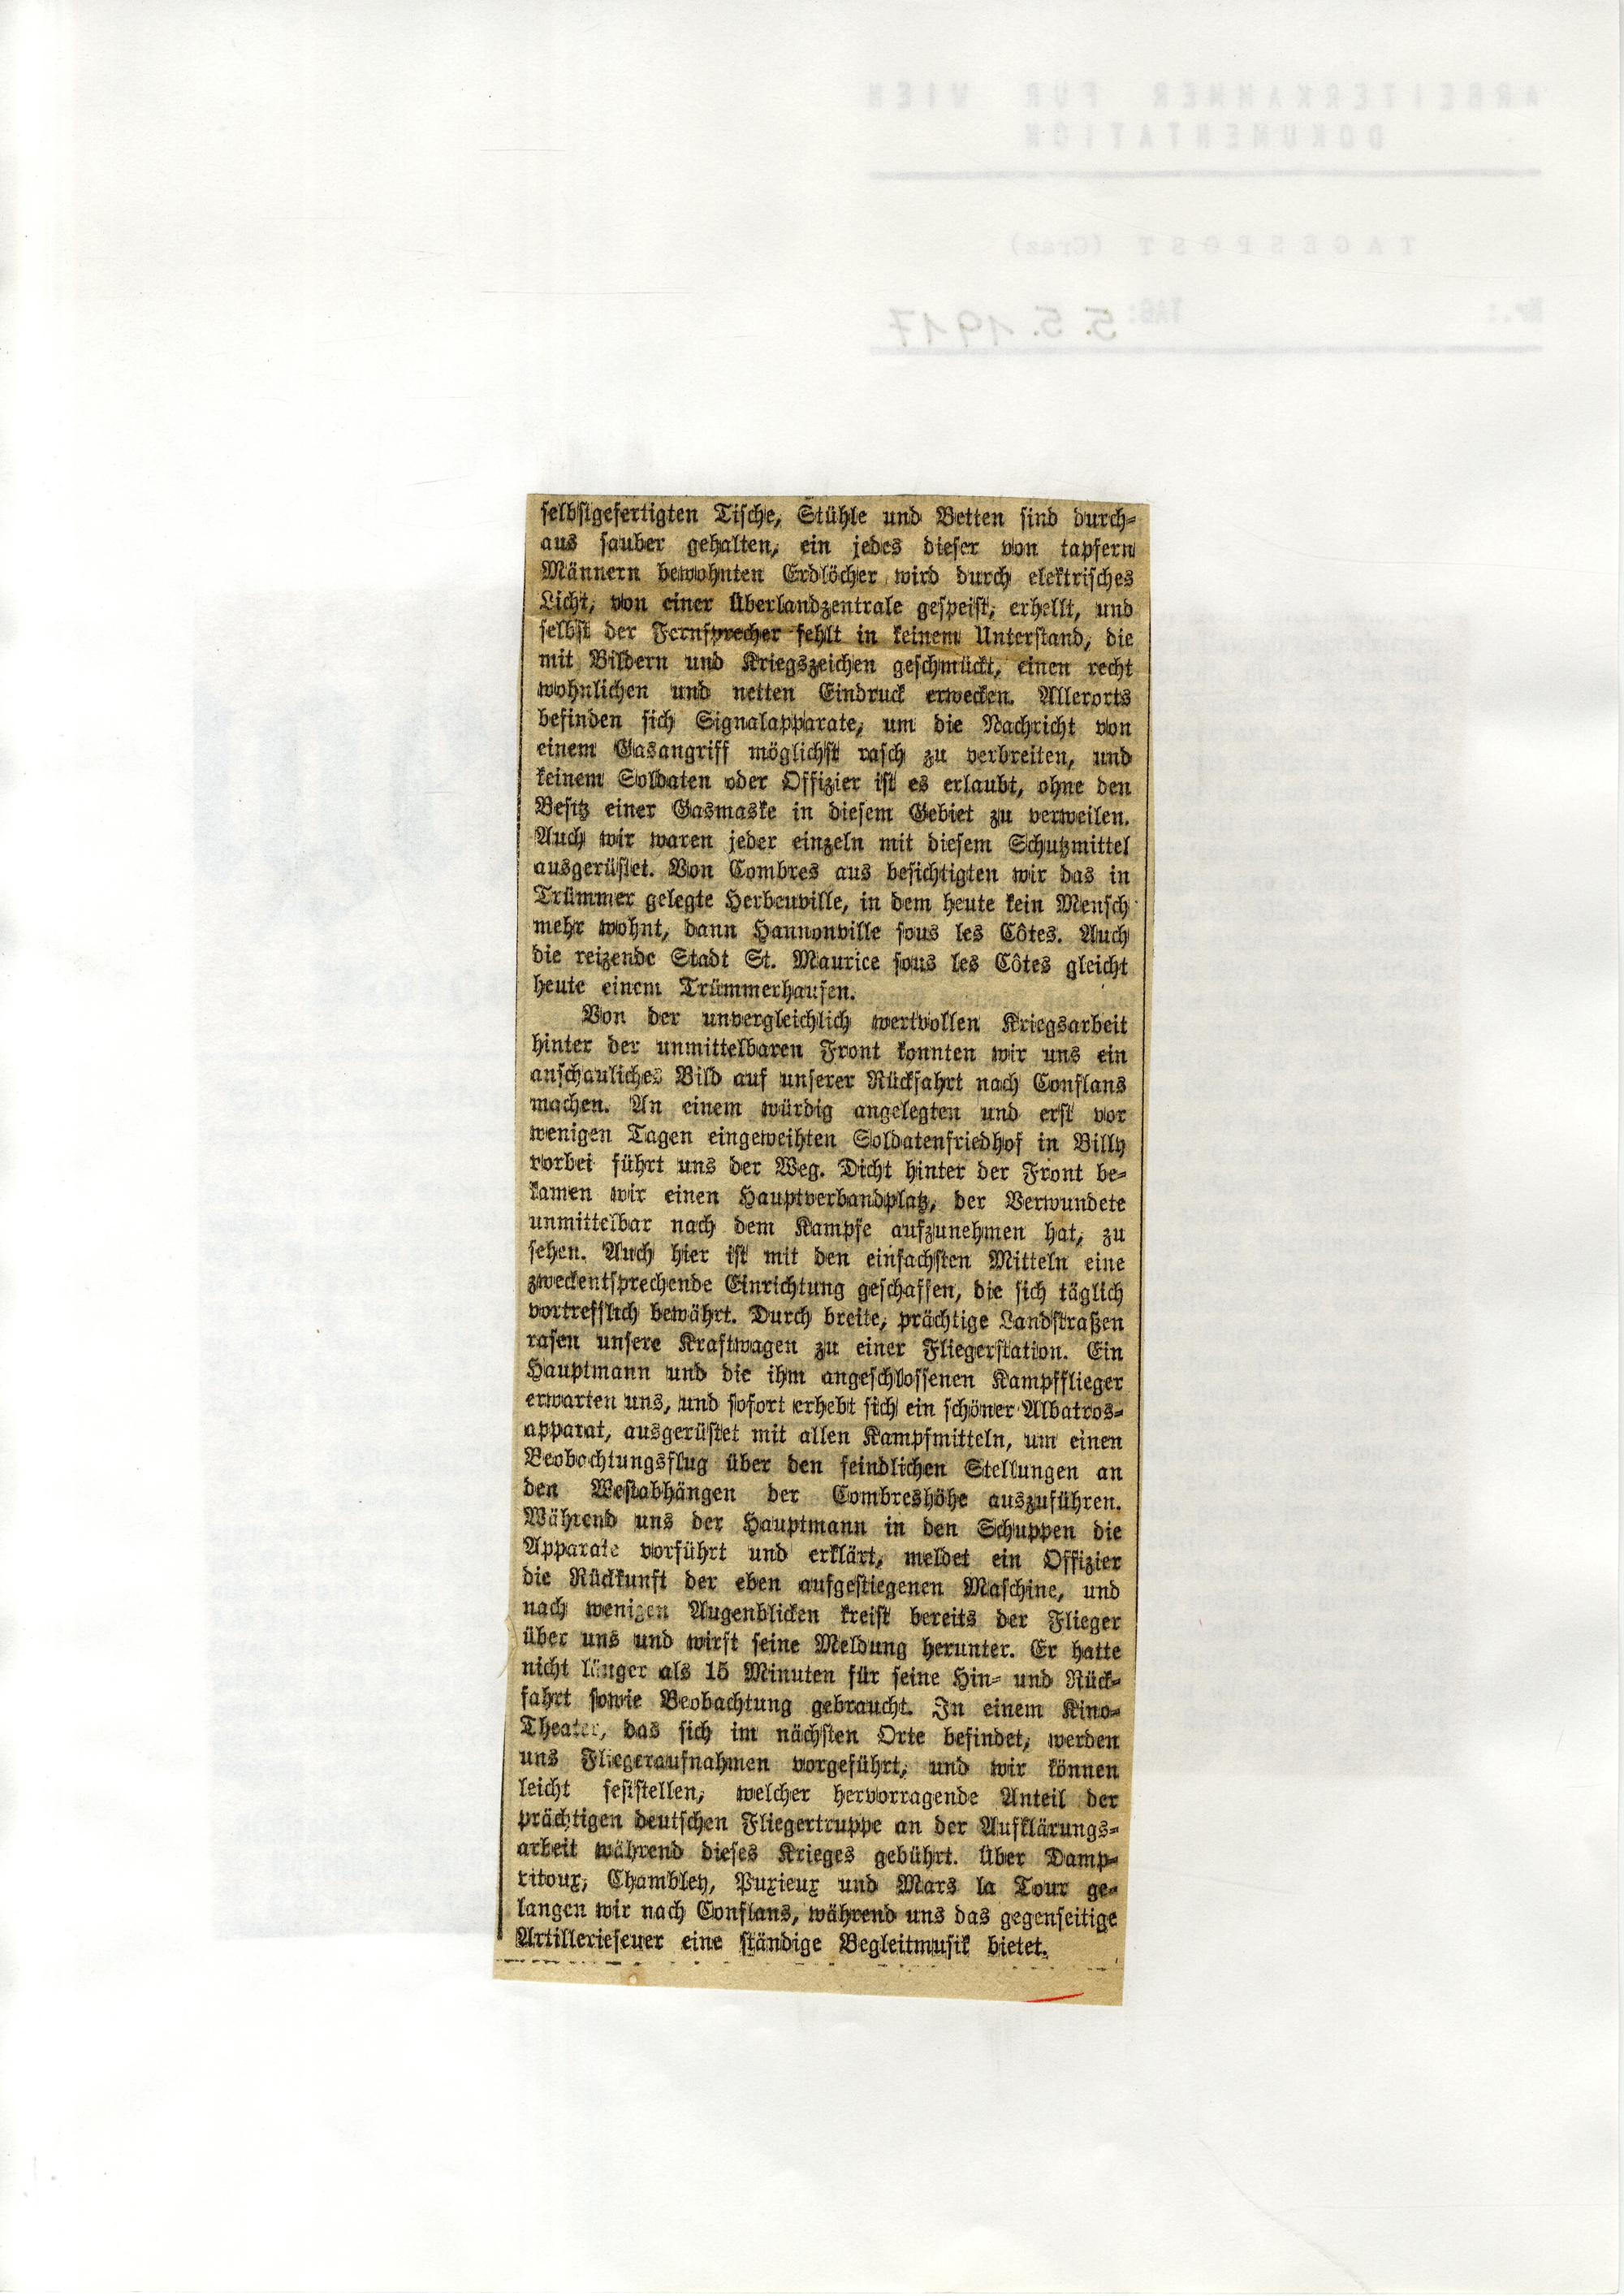 selbstgefertigten Tische, Stühle und Betten sind durch-
aus sauber gehalten, ein jedes dieser von tapfern
Männern bewohnten Erdlöcher wird durch elektrisches
Licht, von einer Überlandzentrale gespeist, erhellt, und
selbst der Fernsprecher fehlt in keinem Unterstand, die
mit Bildern und Kriegszeichen geschmückt, einen recht
wohnlichen und netten Eindruck erwecken. Allerorts
befinden sich Signalapparate, um die Nachricht von
einem Gasangriff möglichst rasch zu verbreiten, und
keinem Soldaten oder Offizier ist es erlaubt, ohne den
Besitz einer Gasmaske in diesem Gebiet zu verweilen.
Auch wir waren jeder einzeln mit diesem Schutzmittel
ausgerüstet. Von Combres aus besichtigten wir das in
Trümmer gelegte Herbeuville, in dem heute kein Mensch
mehr wohnt, dann Hannonville sous les Côtes. Auch
die reizende Stadt St. Maurice sous les Côtes gleicht
heute einem Trümmerhaufen.
Von der unvergleichlich wertvollen Kriegsarbeit
hinter der unmittelbaren Front konnten wir uns ein
anschauliches Bild auf unserer Rückfahrt nach Conflans
machen. An einem würdig angelegten und erst vor
wenigen Tagen eingeweihten Soldatenfriedhof in Billy
vorbei führt uns der Weg. Dicht hinter der Front be-
kamen wir einen Hauptverbandplatz, der Verwundete
unmittelbar nach dem Kampfe aufzunehmen hat, zu
sehen. Auch hier ist mit den einfachsten Mitteln eine
zweckentsprechende Einrichtung geschaffen, die sich täglich
vortrefflich bewährt. Durch breite, prächtige Landstraßen
rasen unsere Kraftwagen zu einer Fliegerstation. Ein
Hauptmann und die ihm angeschlossenen Kampfflieger
erwarten uns, und sofort erhebt sich ein schöner Albatros-
apparat, ausgerüstet mit allen Kampfmitteln, um einen
Beobachtungsflug über den feindlichen Stellungen an
den Westabhängen der Combreshöhe auszuführen.
Während uns der Hauptmann in den Schuppen die
Apparate vorführt und erklärt, meldet ein Offizier
die Rückkunft der eben aufgestiegenen Maschine, und
nach wenigen Augenblicken kreist bereits der Flieger
über uns und wirft seine Meldung herunter. Er hatte
nicht länger als 15 Minuten für seine Hin- und Rück-
fahrt sowie Beobachtung gebraucht. In einem Kino-
Theater, das sich im nächsten Orte befindet, werden
uns Fliegeraufnahmen vorgeführt, und wir können
leicht feststellen, welcher hervorragende Anteil der
prächtigen deutschen Fliegertruppe an der Aufklärungs-
arbeit während dieses Krieges gebührt. Über Damp-
ritoux, Chambley, Puxieux und Mars la Tour ge-
langen wir nach Conflans, während uns das gegenseitige
Artilleriefeuer eine ständige Begleitmusik bietet.